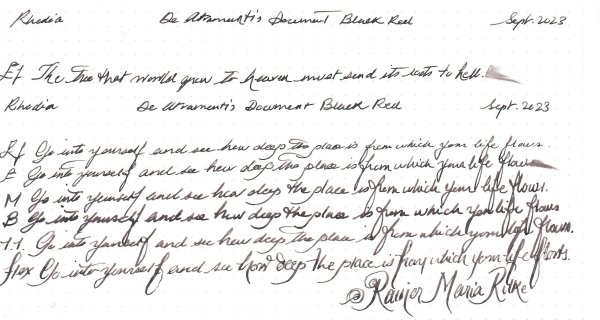 Rhodia De Atramentis Document Black Red Sept. 2023
Ef The tree that would grow to heaven must send its roots to hell.
Rhodia De Atramentis Document Black Red Sept. 2023
Ef Go into yourself and see how deep the place is from which your life flows.
F Go into yourself and see how deep the place is from which your life flows
M Go into yourself and see how deep the place is from which your life flows.
B Go into yourself and see how deep the place is from which your life flows
1.1. Go into yourself and see how deep the place is from which your life flows.
flex Go into yourself and see how deep the place is from which your life flows.
Rainer Maria Rilke